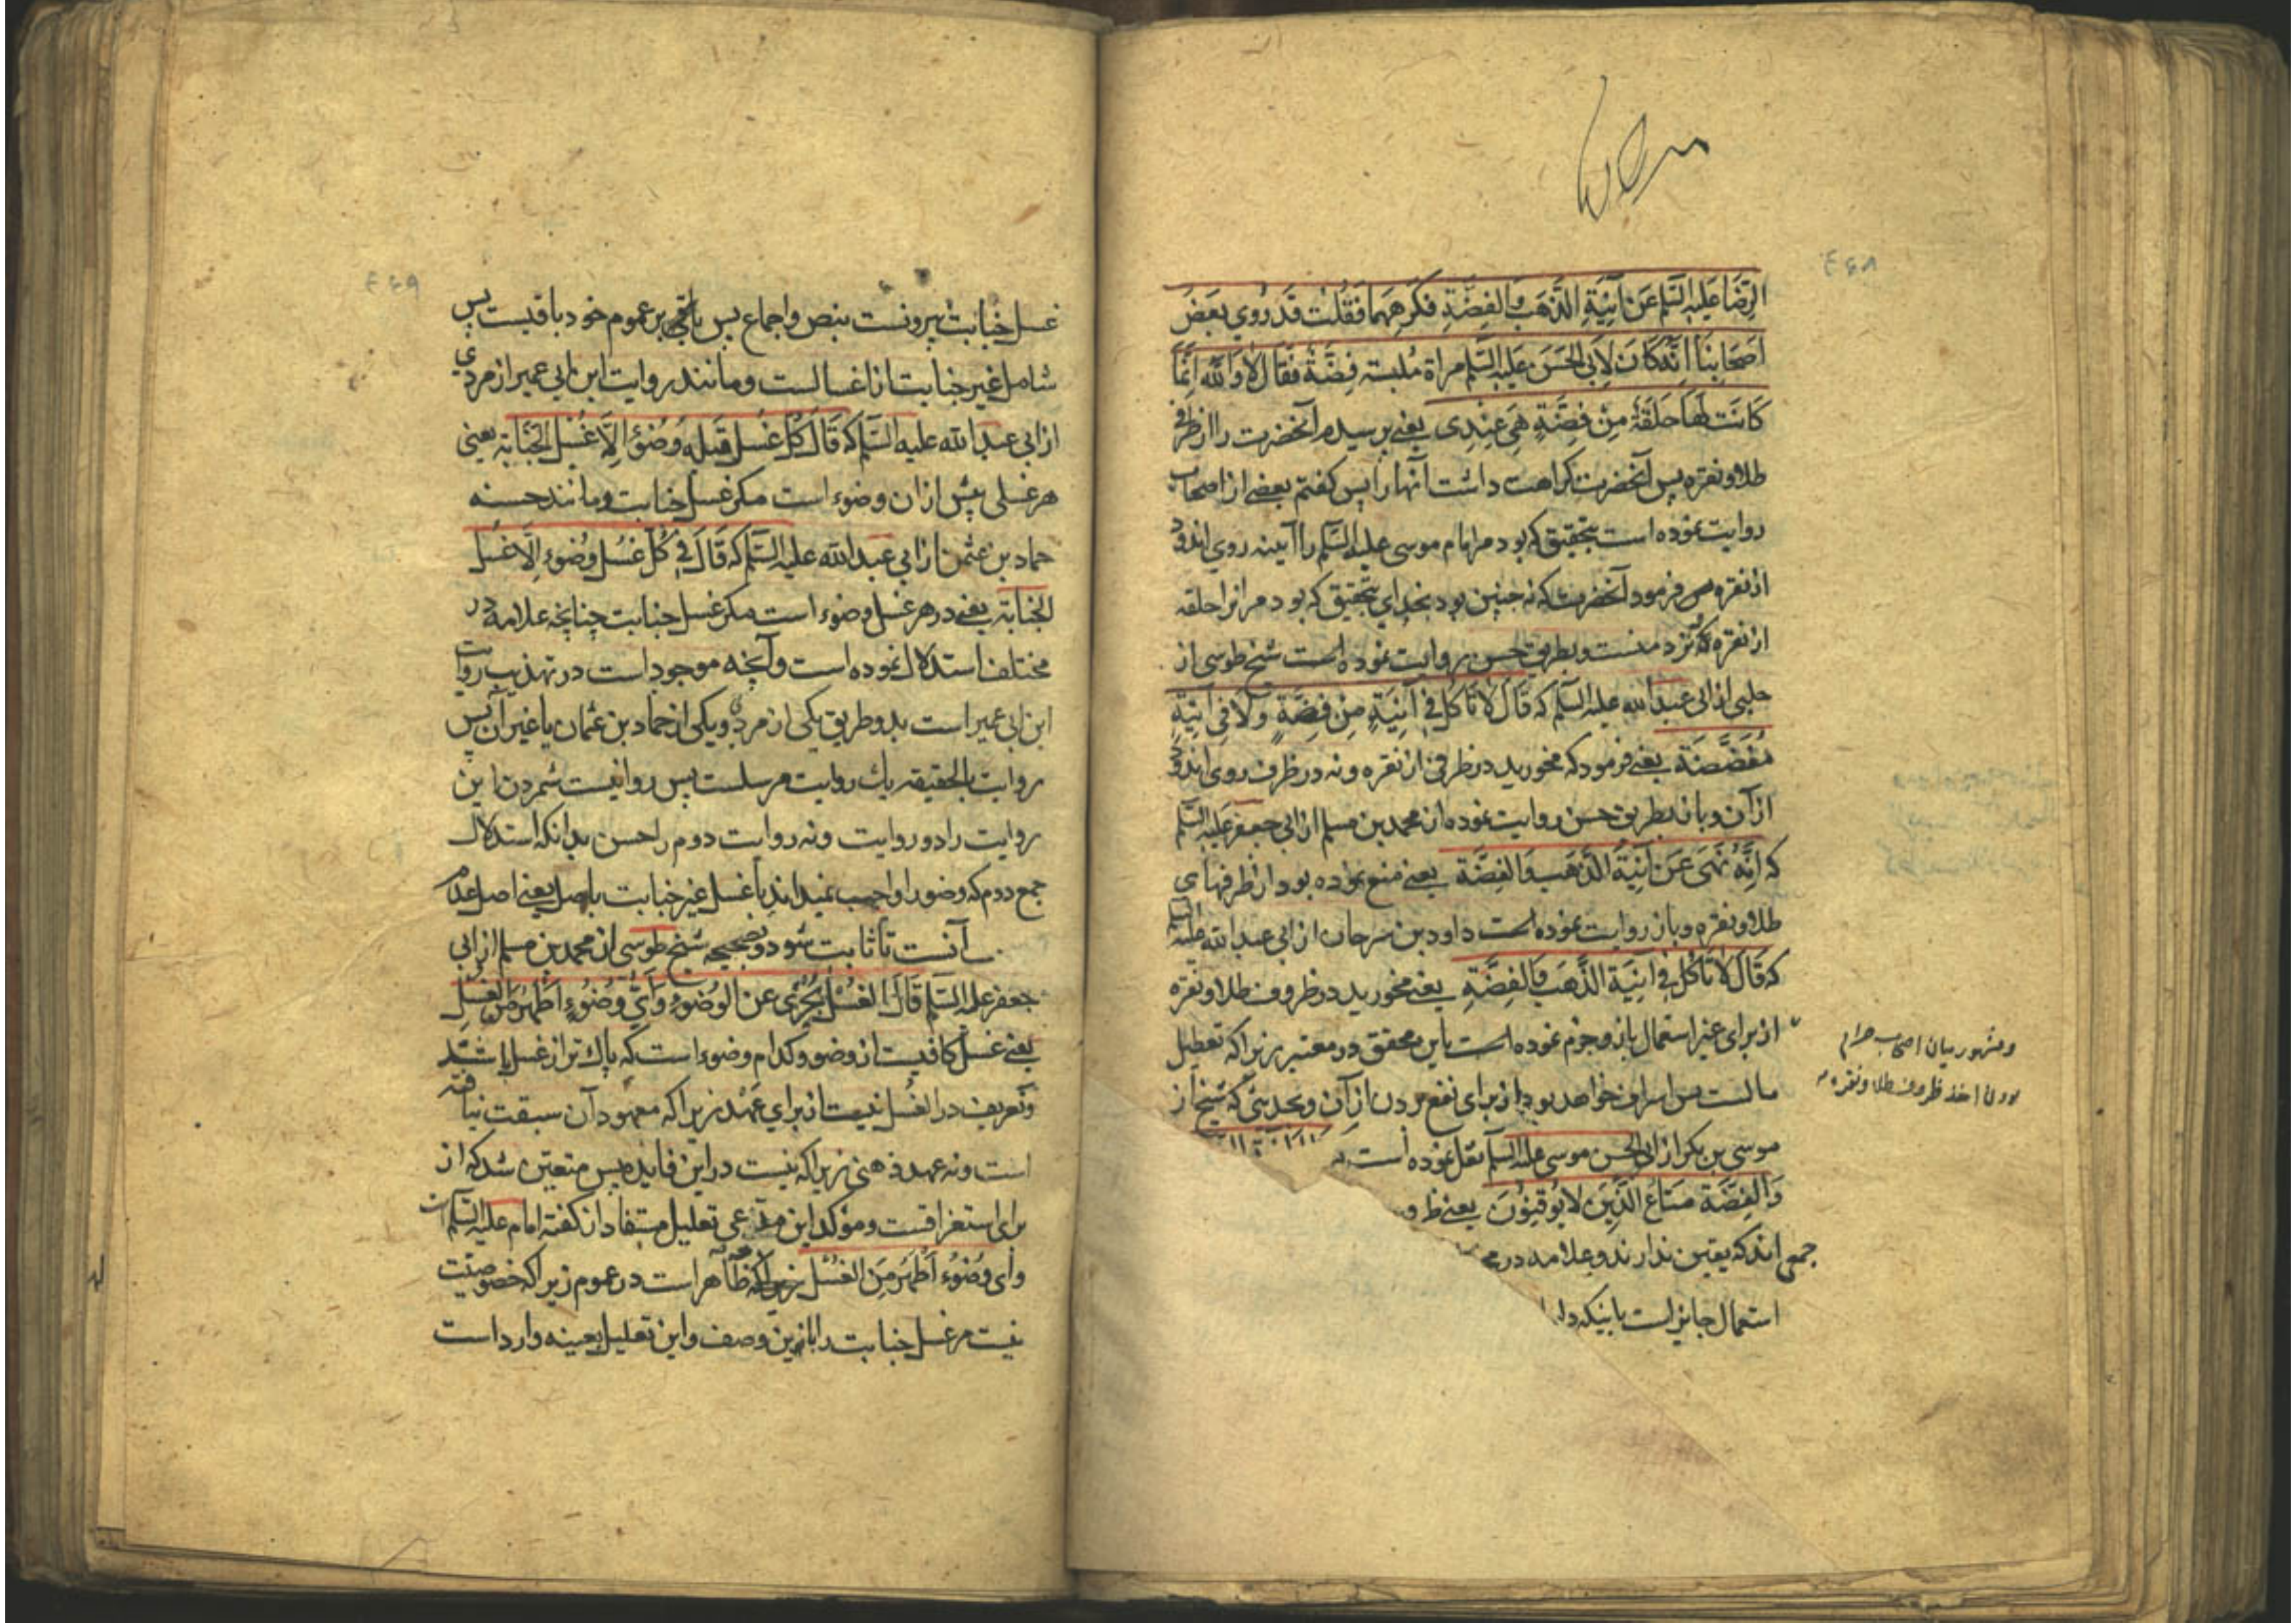 ۴۶۸
الرِّضَا عَلَيْهِ السَّلَم عَنْ آنِيَةِ الذَّهَبِ وَالفِضَّةِ فَكَرِهَهُمَا فَقُلْتُ قَدْ رُوِيَ بَعْضُ
اَصْحَابِنَا اَنَّهُ كَانَ لِاَبِي الحَسَنِ عَلَيْهِ السَّلَم مرآة مُلبسة فِضَّةً فَقَالَ لَا وَاللّٰهِ اِنَّمَا
كَانَتْ لَهَا حَلَقَةٌ مِنْ فِضَّةٍ هِيَ عِنْدِي يعنى پرسيدم آنحضرت را از ظرف
طلا و نقره پس آنحضرت كراهت داشت آنها را پس كفتم بعضى از اصحاب
روايت نموده است بتحقيق كه بود مر امام موسى عليه السلم را آيينه روى اندود
از نقره پس فرمود آنحضرت كه نه چنين بود بخداى بتحقيق كه بود مر انرا حلقه
از نقره كه نزد منست و بطريق حسن روايت نموده است شيخ طوسى از
حلبى از ابى عبد الله عليه السلم كه قَالَ لَا تَأكُل فِي آنِيَةٍ مِنْ فِضَّةٍ وَلَا فِي آنِيَةٍ
مُفَضَّضَة يعنى فرمود كه مخوريد در ظرفى از نقره و نه در ظرف روى اندود
از آن و باز بطريق حسن روايت نموده از محمد بن مسلم از ابى جعفر عليه السلم
كه اِنَّهُ نَهَى عَنْ آنِيَةِ الذَّهَبِ وَالفِضَّة يعنى منع نموده بود از ظرفهاى
طلا و نقره و باز روايت نموده است داود بن سرحان از ابى عبد الله عليه السلم
كه قَالَ لَا تَأكُل فِي آنِيَةِ الذَّهَبِ وَالفِضَّةِ يعنى مخوريد در ظروف طلا و نقره
از براى غير استعمال باز و جزم نموده است باين محقق در معتبر زيرا كه تعطيل
مالست پس اسراف خواهد بود از براى نفع بردن از آن و بحديثى كه شيخ از
موسى بن بكر از ابى الحسن موسى عليه السلم نقل نموده است
وَالفِضَّة مَتَاعُ الَّذِينَ لَا يُوقِنُونَ يعنى ظرو
جمعى اند كه يقين ندارند و علامه در مخ
استعمال جايز است باينكه دليل
ومشهور ميان اصحاب حرام
بودن اخذ ظروف طلا و نقره
۴۶۹
غسل جنابت بيرونست بنص و اجماع پس باقى بر عموم خود باقيست پس
شامل غير جنابت از اغسالست و مانند روايت ابن ابى عمير از مردى
از ابى عبد الله عليه السلم كه قَالَ كُلُّ غُسْلٍ قَبْلَهُ وُضُوْءٌ اِلَّا غُسْلَ الجَنَابَةِ يعنى
هر غسلى پيش از ان وضوء است مكر غسل جنابت و مانند حسنه
حماد بن عثمن از ابى عبد الله عليه السلم كه قَالَ فِي كُلِّ غُسْلٍ وُضُوءٌ اِلَّا غُسْلَ
الجنابة يعنى در هر غسل وضوء است مكر غسل جنابت چنانچه علامه در
مختلف استدلال نموده است و آنچه موجود است در تهذيب روايت
ابن ابى عمير است بدو طريق يكى از مردى و يكى از حماد بن عثمان يا غير آن پس
روايت بالحقيقه يك روايت مرسلست پس روا نيست شمردن اين
روايت را دو روايت و نه روايت دوم را حسن بدانكه استدلال
جمع دوم كه وضو را واجب نميدانند با غسل غير جنابت باصل يعنى اصل عدم
آنست تا ثابت شود و بصحيحه شيخ طوسى از محمد بن مسلم از ابى
جعفر عليه السلم قَالَ الغُسْلُ يُجْزِى عَنِ الوُضُوءِ وَاَيُّ وُضُوءٍ اَطْهَرُ مِنَ الغُسْلِ
يعنى غسل كافيست از وضو و كدام وضوء است كه پاك تر از غسل باشد
و تعريف در الغسل نيست از براى عهد زيرا كه معهود آن سبقت نيافته
است و نه عهد ذهنى زيرا كه نيست در اين فايده پس متعين شد كه از
براى استغراقست و مؤكد اين مدعى تعليل مستفاد از كفته امام عليه السلم است
وَاَيُّ وُضُوْءٍ اَطْهَرُ مِنَ الغُسْل كه ظاهر است در عموم زيرا كه خصوصيت
نيست مر غسل جنابت را باين وصف و اين تعليل بعينه وارد است